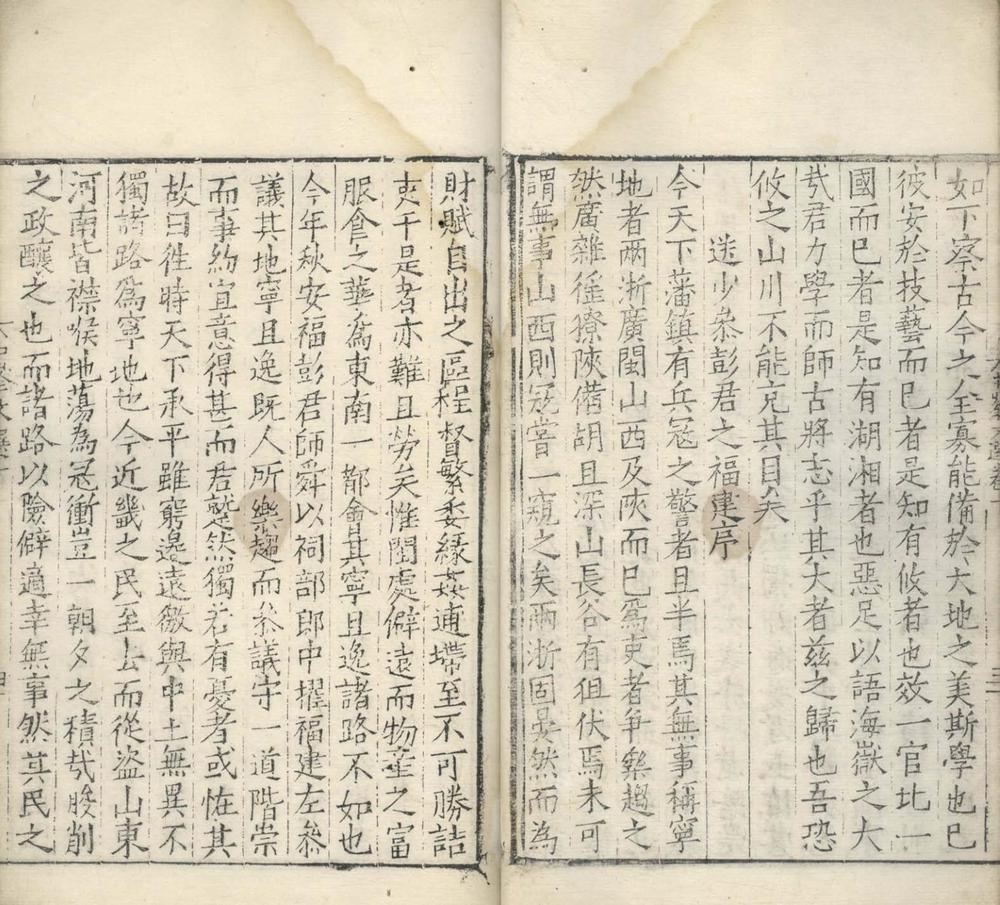 如下察古今之全寡能備於大地之美斯學也已
彼安於技藝而已者是知有攸者也效一官比一
國而已者是知有湖湘者也惡足以語海嶽之大
㢤君力學而師古將志乎其大者兹之歸也吾恐
攸之山川不能充其目矣
送少叅彭君之福建序
今天下藩鎮有兵冦之警者且半焉其無事稱寧
地者兩浙廣閩山西及陜而已爲吏者爭樂趨之
然廣雜徭獠陜備胡且深山長谷有徂伏焉未可
謂無事山西則冦嘗一窺之矣兩浙固晏然而為
財賦自出之區程督繁委緣姦逋墆至不可勝詰
吏于是者亦難且勞矣惟閩處僻遠而物産之富
服食之華爲東南一都會其寧且逸諸路不如也
今年秋安福彭君師舜以祠部郎中擢福建左叅
議其地寧且逸既人所樂趨而叅議守一道階崇
而事約宜意得甚而君蹵然獨若有憂者或恠其
故曰徃時天下承平雖窮邊遠徼與中土無異不
獨諸路爲寧地也今近畿之民至去而從盗山東
河南皆襟喉地蕩為冦衝豈一朝夕之積㢤朘削
之政釀之也而諸路以險僻適幸無事然其民之